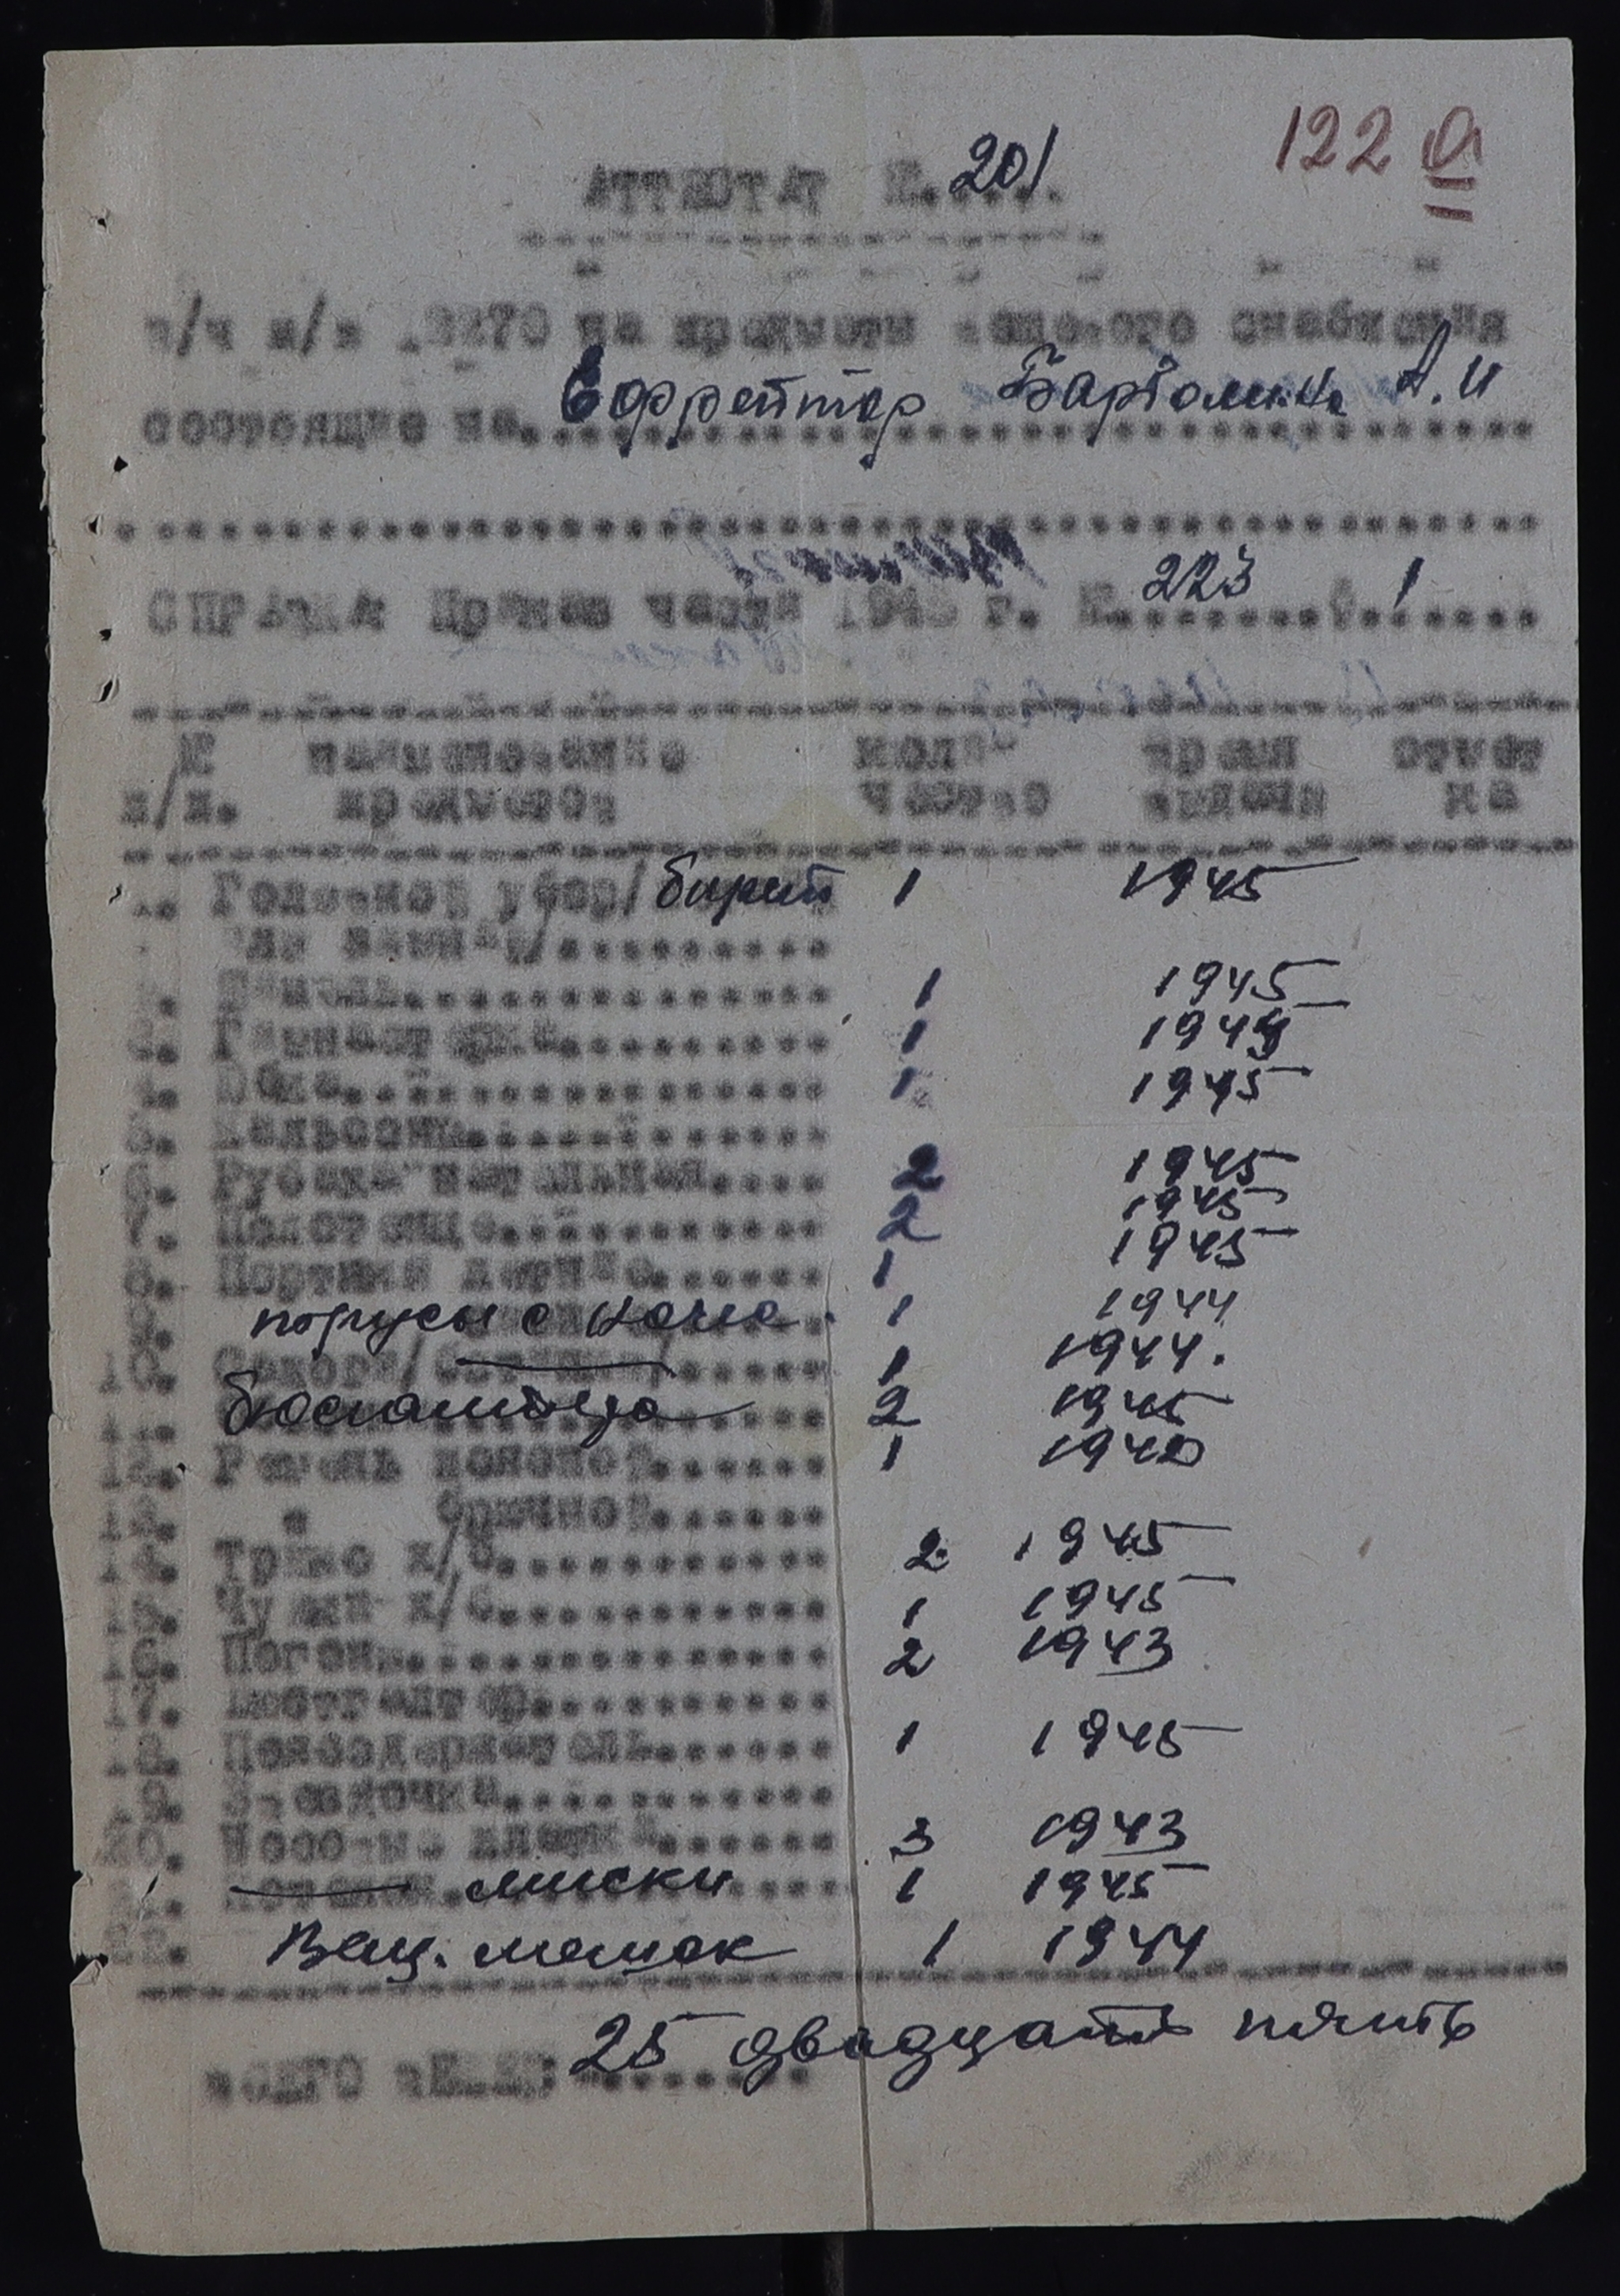 122 а
АТТЕСТАТ №.201
в/ч п/п на предметы вещевого снабжения
состоящие на. Ефрейтор А.И
СПРАВКА Приказ части 1945 г. №. 223 §. 1
№ наименование коли- время отмет
п/п. предметов чество выдачи ка
1. Головной убор/ берет 1 1945
или зимний/.
2. Шинель. 1 1945
3. Гимнастерка. 1 1944
4. Юбка. 1 1945
5. Кальсоны.
6. Рубаха нательная. 2 1945
7. Полотенце. 2 1945
8. Портянки летние. 1 1945
9. 1 1944
10. Сапоги/ботинки/ 1 1944.
11. бюсгалтера 2 1945
12. Ремень поясной. 1 1940
13. " брючной.
14. Трико х/б. 2 1945
15. Чулки х/б. 1 1945
16. Погоны. 2 1943
17. Бюстгалтер.
18. Поясодержатель. 1 1945
19.
20. Носовые платки. 3 1943
21. Котелок. миски 1 1945
22. Вещ. мешок 1 1944
ВСЕГО ВЕЩЕЙ 25 двадцать пять